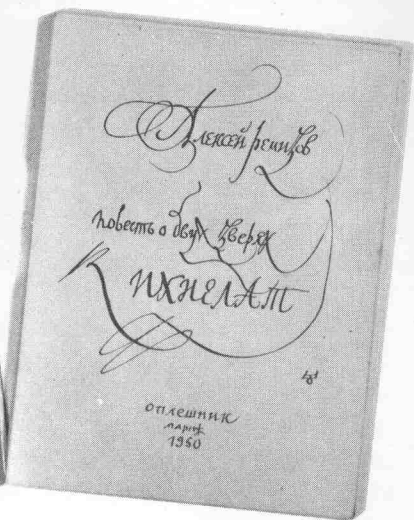 Алексей Ремизов
повесть о двух зверях
ИХНЕЛАТ
оплешник
париж
1950